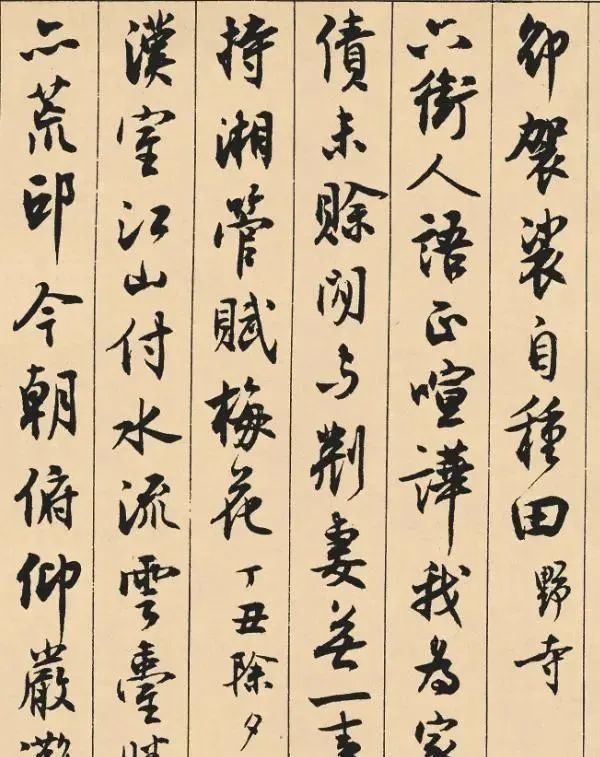 卸袈裟自種田 野寺
六街人語正喧譁我為家
債未賒閒与荆妻無一事
持湘管賦梅花 丁丑除夕
漢室江山付水流雲臺
亦荒邱今朝俯仰嚴